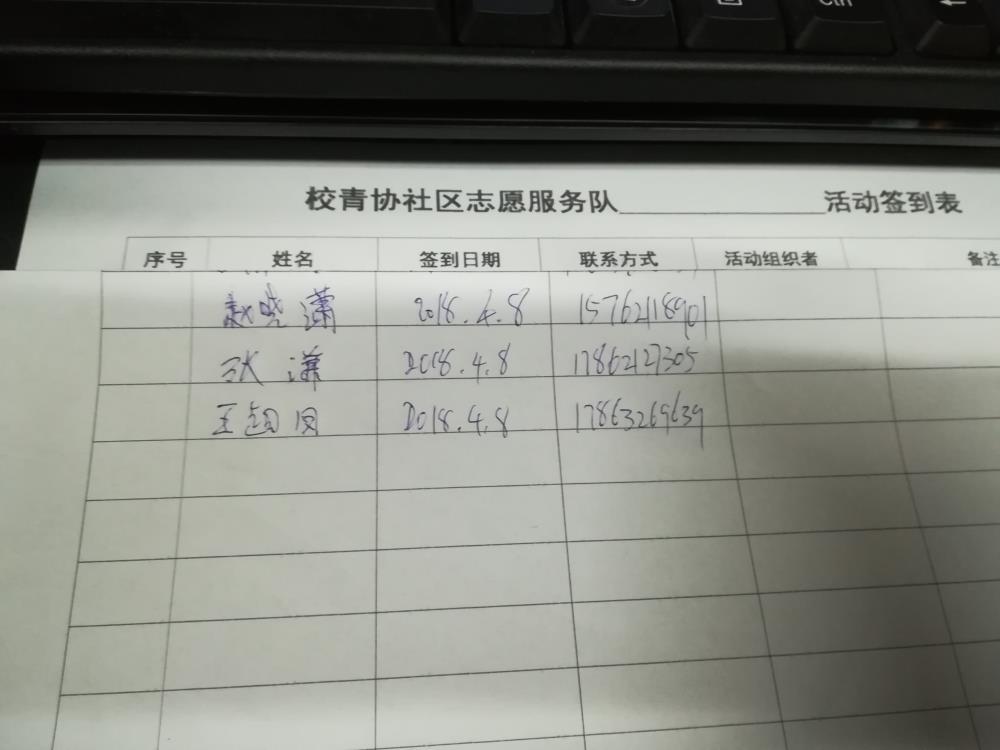 校青协社区志愿服务队____________活动签到表
序号 姓名 签到日期 联系方式 活动组织者 备注
赵晓潇 2018.4.8 15762118901
张潇 2018.4.8 17862127305
王 2018.4.8 17863269639